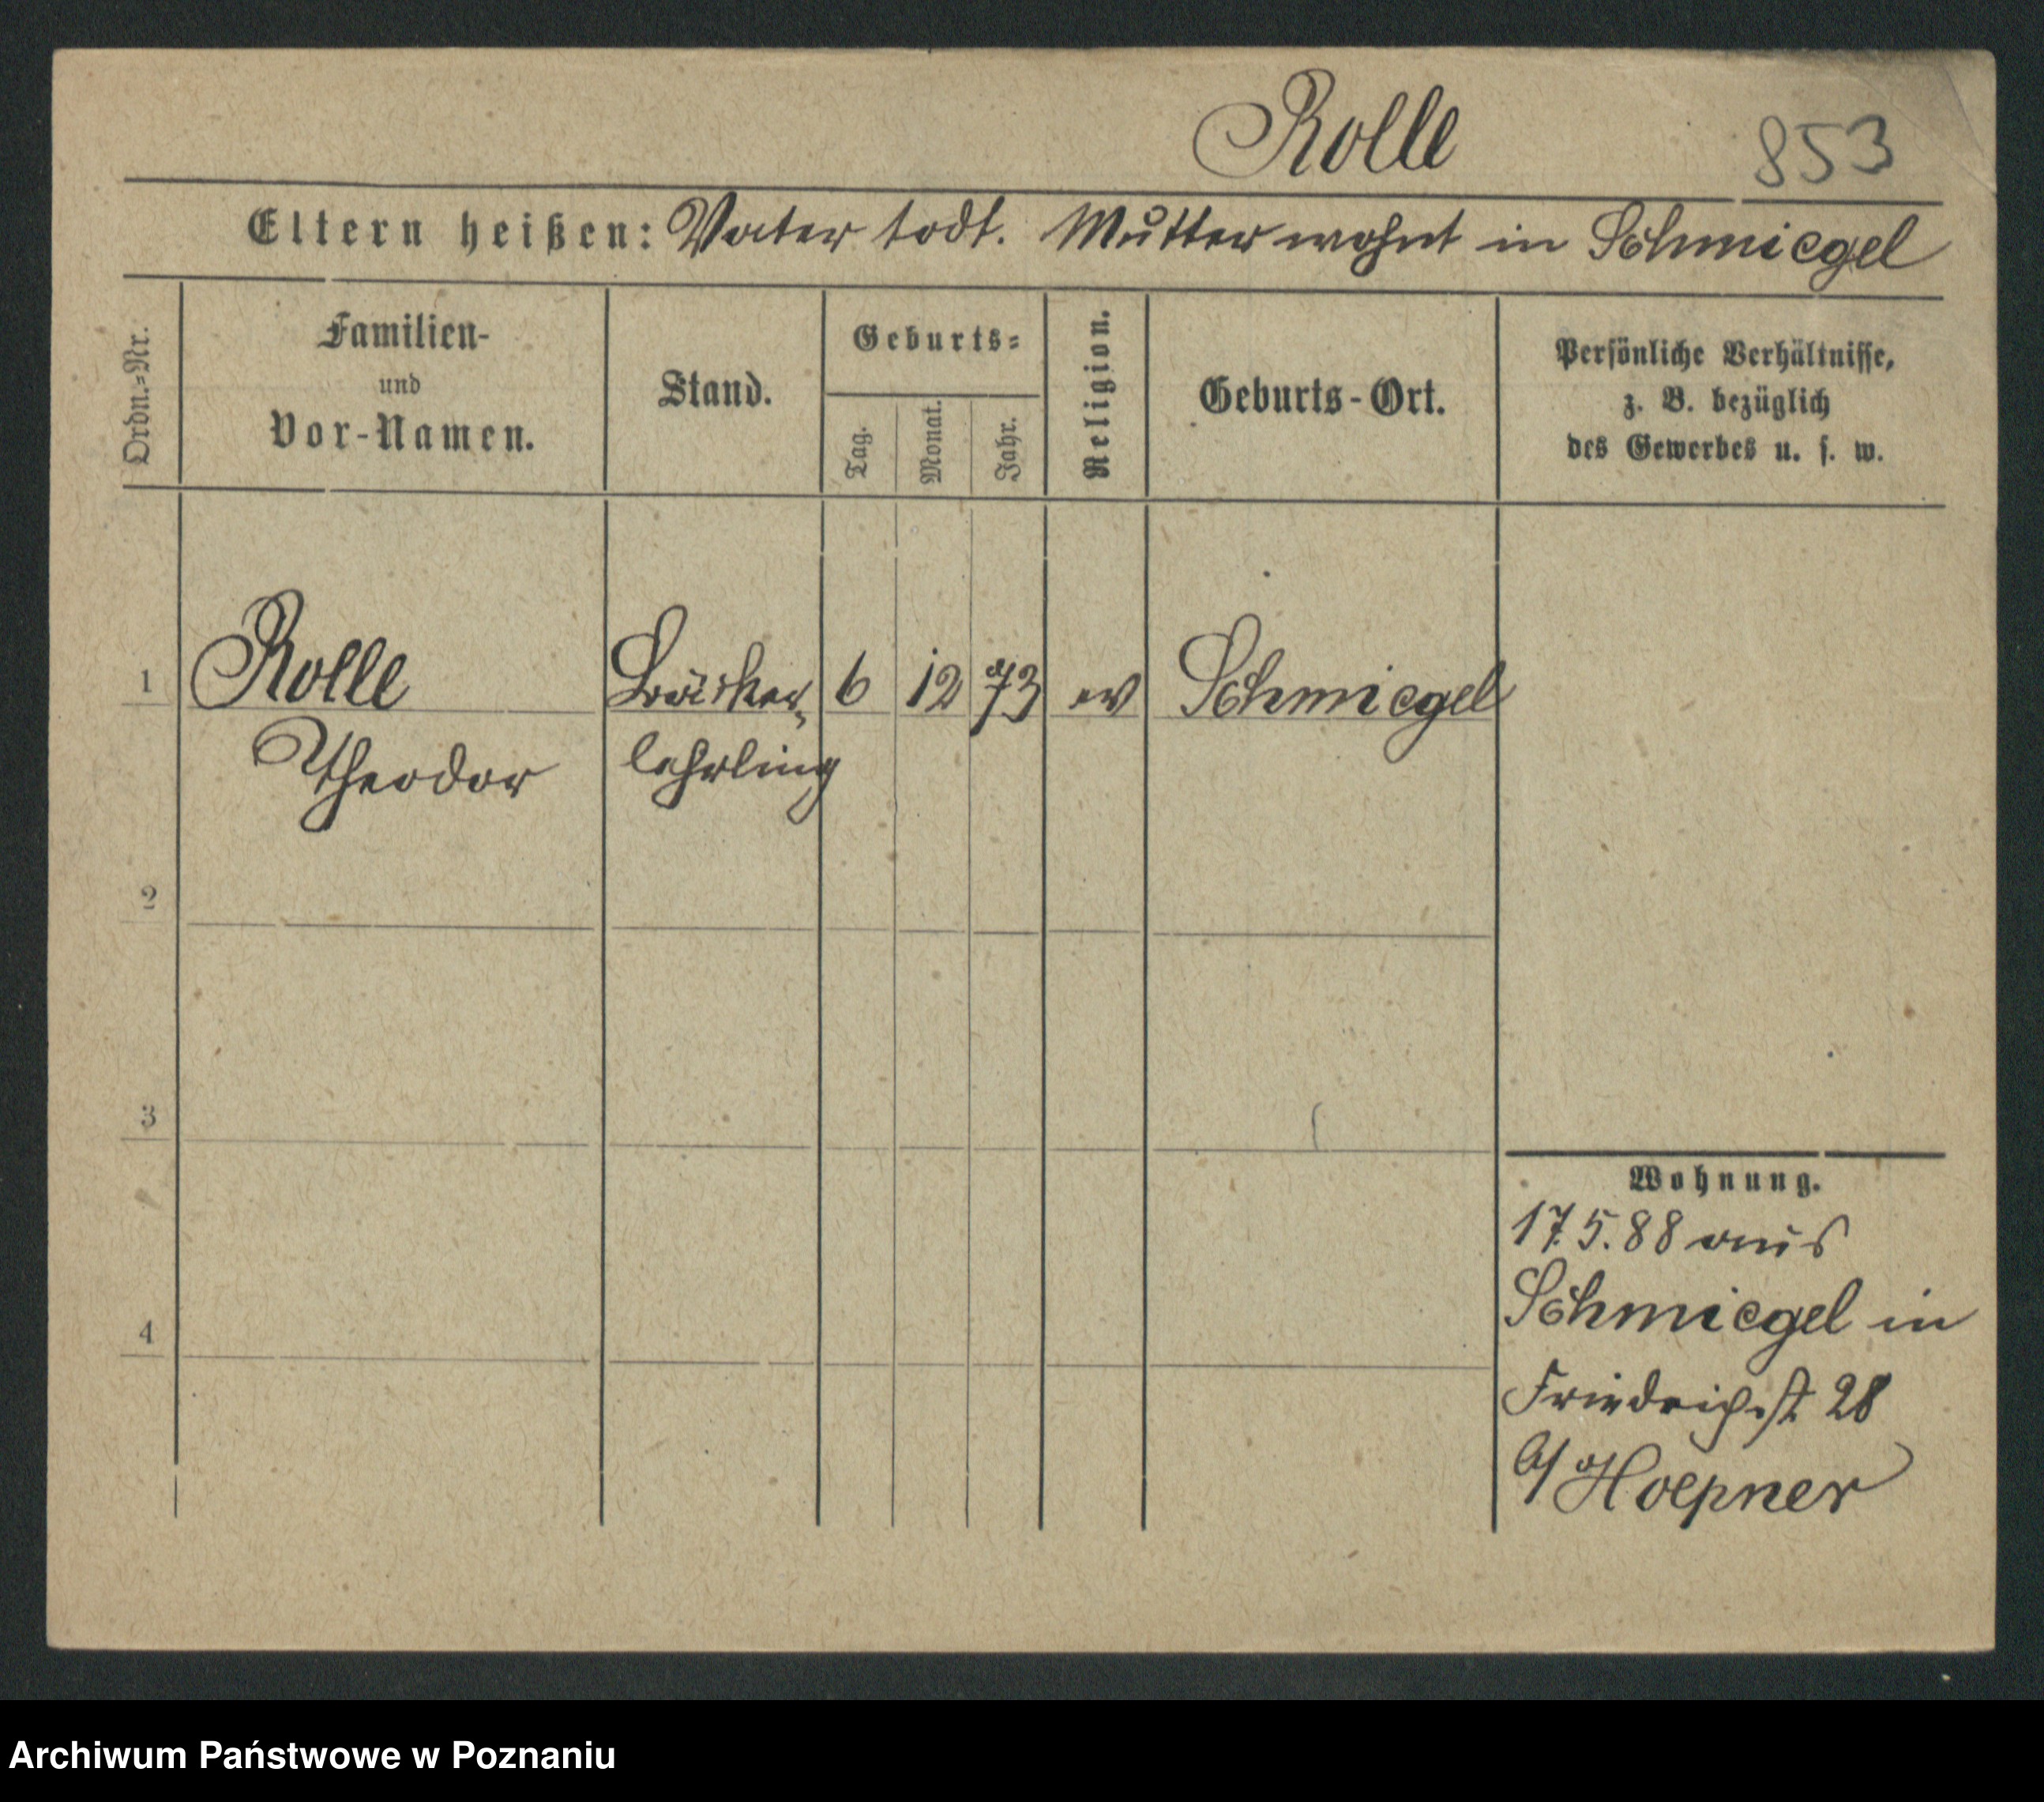 Rolle
853
Eltern heißen: Vater todt. Mutter wohnt in Schmiegel
Ordn.=Nr.
Familien-
und
Vor-Namen.
Stand.
Geburts=
Tag.
Monat.
Jahr.
Religion.
Geburts-Ort.
Persönliche Verhältnisse,
z. B. bezüglich
des Gewerbes u. s. w.
1 Rolle 6 12 73 ev Schmiegel
Theodor lehrling
2
3
4
Wohnung.
17.5.88 aus
Schmiegel in
Friedrichst 28
b/ Hoepner
Archiwum Państwowe w Poznaniu